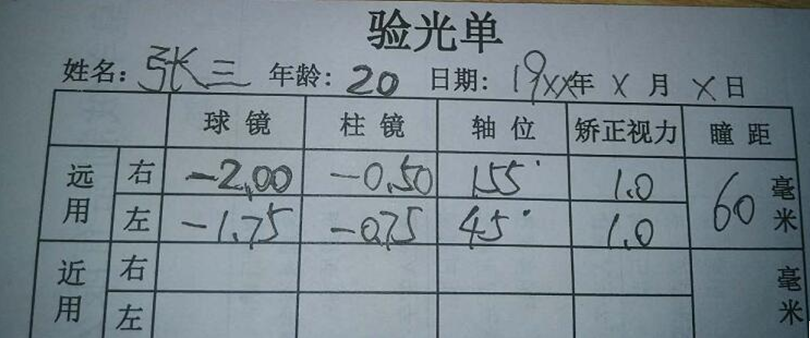 验光单
姓名：张三 年龄：20 日期：19xx年 x 月 x 日
球镜 柱镜 轴位 矫正视力 瞳距
远用 右 -2.00 -0.50 155° 1.0 60 毫米
左 -1.75 -0.75 45° 1.0
近用 右 毫米
左